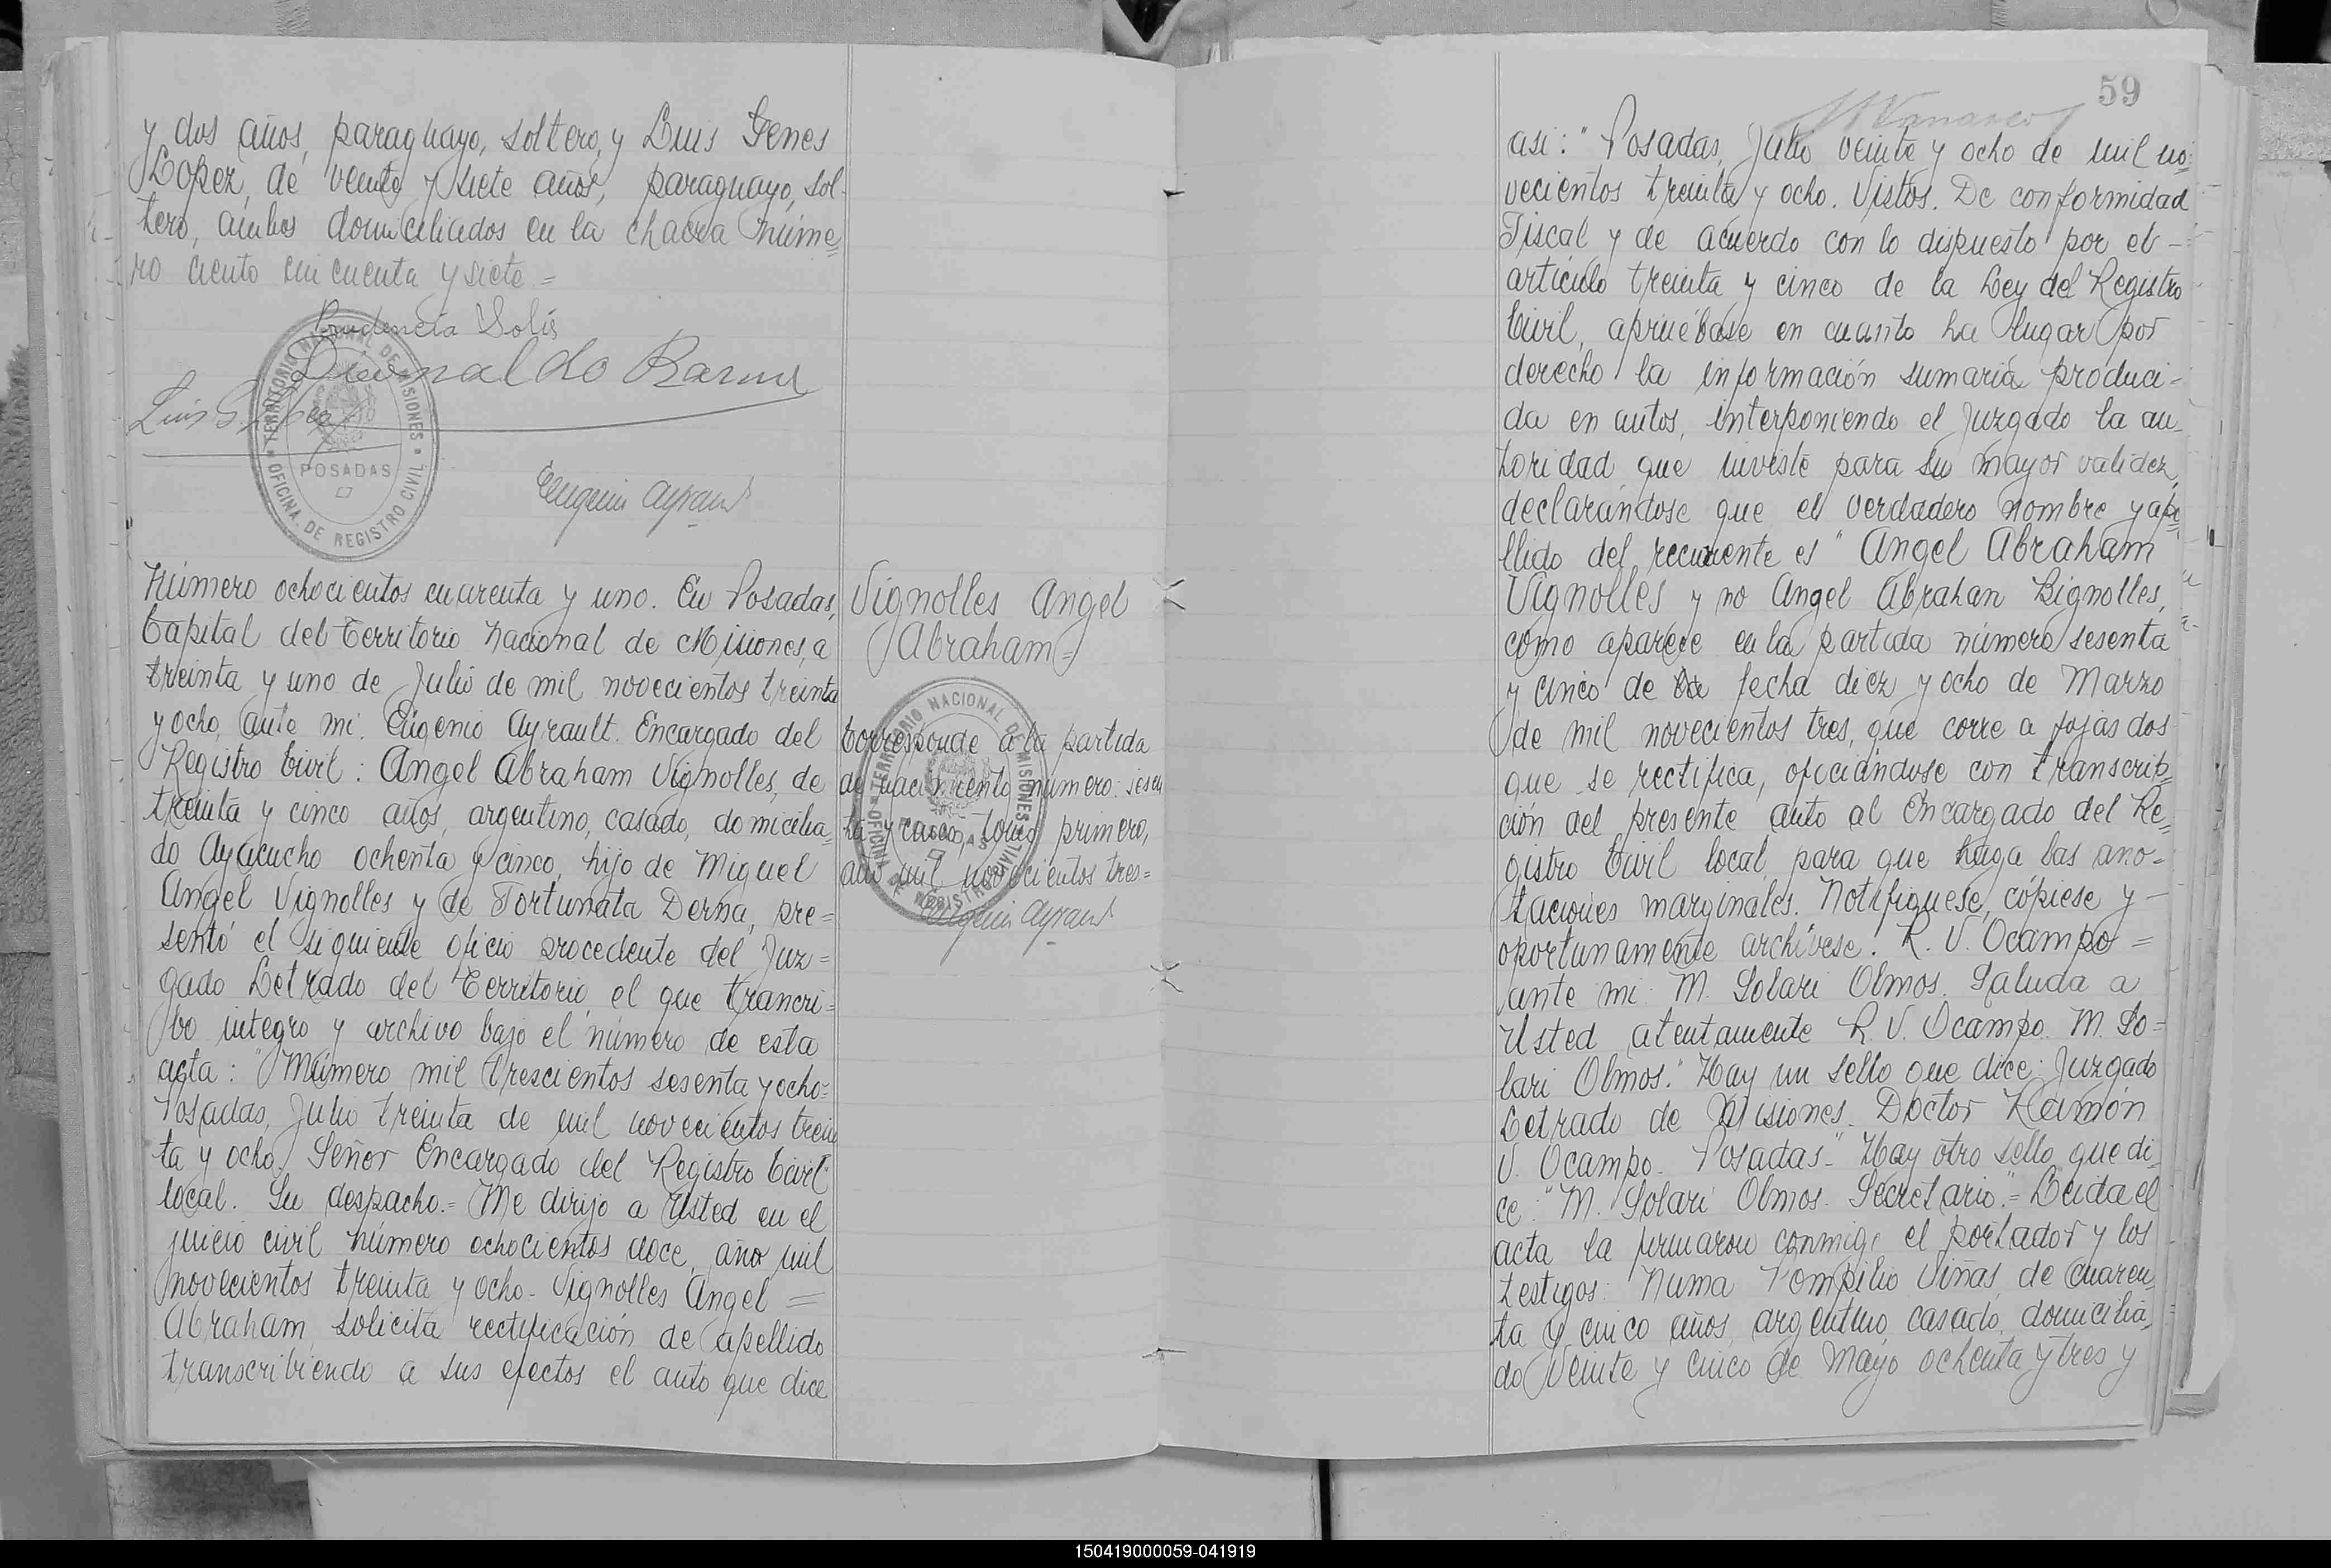 y dos años, paraguayo, soltero, y Luis Genes
Lopez, de veinte y siete años, paraguayo, sol-
tero, ambos domiciliados en la chacra núme=
ro ciento cincuenta y siete =
Prudencia Solis
TERRITORIO NACIONAL DE MISIONES
POSADAS
OFICINA DE REGISTRO CIVIL
Eugenio Ayrault
Número ochocientos cuarenta y uno. En Posadas,
Capital del Territorio Nacional de Misiones, a
treinta y uno de Julio de mil novecientos treinta
y ocho, ante mi. Eugenio Ayrault. Encargado del
Registro Civil: Angel Abraham Vignolles, de
treinta y cinco años, argentino, casado, domicilia=
do Ayacucho ochenta y cinco, hijo de Miguel
Angel Vignolles y de Fortunata Derna, pre=
sentó el siguiente oficio procedente del Juz=
gado Letrado del Territorio, el que trancri=
bo integro y archivo bajo el número de esta
acta: "Número mil trescientos sesenta y ocho=
Posadas, Julio treinta de mil novecientos trein
ta y ocho. Señor Encargado del Registro Civil
local. Su despacho.= Me dirijo a Usted en el
juicio civil número ochocientos doce, año mil
novecientos treinta y ocho- Vignolles Angel =
Abraham solicita rectificación de apellido
transcribiendo a sus efectos el auto que dice
Vignolles Angel
Abraham=
Corresponde a la partida
de nacimiento número: sesen
ta y cinco, tomo primero,
año mil novecientos tres=
TERRITORIO NACIONAL DE MISIONES
OFICINA DE REGISTRO CIVIL
Eugenio Ayrault
59
asi: "Posadas, Julio veinte y ocho de mil no=
vecientos treinta y ocho. Vistos. De conformidad
Fiscal y de acuerdo con lo dispuesto por el -
artículo treinta y cinco de la Ley del Registro
Civil, apruébase en cuanto ha lugar por
derecho la información sumaria produci-
da en autos, interponiendo el Juzgado la au-
toridad que inviste para su mayor validez,
declarándose que el verdadero nombre y ape=
llido del recurrente es "Angel Abraham
Vignolles y no Angel Abrahan Bignolles,
como aparece en la partida número sesenta
y cinco de fecha diez y ocho de Marzo
de mil novecientos tres, que corre a fojas dos
que se rectifica, oficiándose con transcrip=
ción del presente auto al Encargado del Re=
gistro Civil local, para que haga las ano-
taciones marginales. Notifíquese, cópiese y -
oportunamente archívese. R. V. Ocampo =
ante mi: M. Solari Olmos. Saluda a
Usted atentamente R. V. Ocampo. M. So=
lari Olmos." Hay un sello que dice: Juzgado
Letrado de Misiones. Doctor Ramón
V. Ocampo. Posadas-" Hay otro sello que di
ce: "M. Solari Olmos. Secretario."= Leida el
acta la firmaron conmigo el portador y los
testigos: Numa Pompilio Viñas, de cuaren
ta y cinco años, argentino, casado, domicilia
do Veinte y cinco de Mayo ochenta y tres y
150419000059-041919